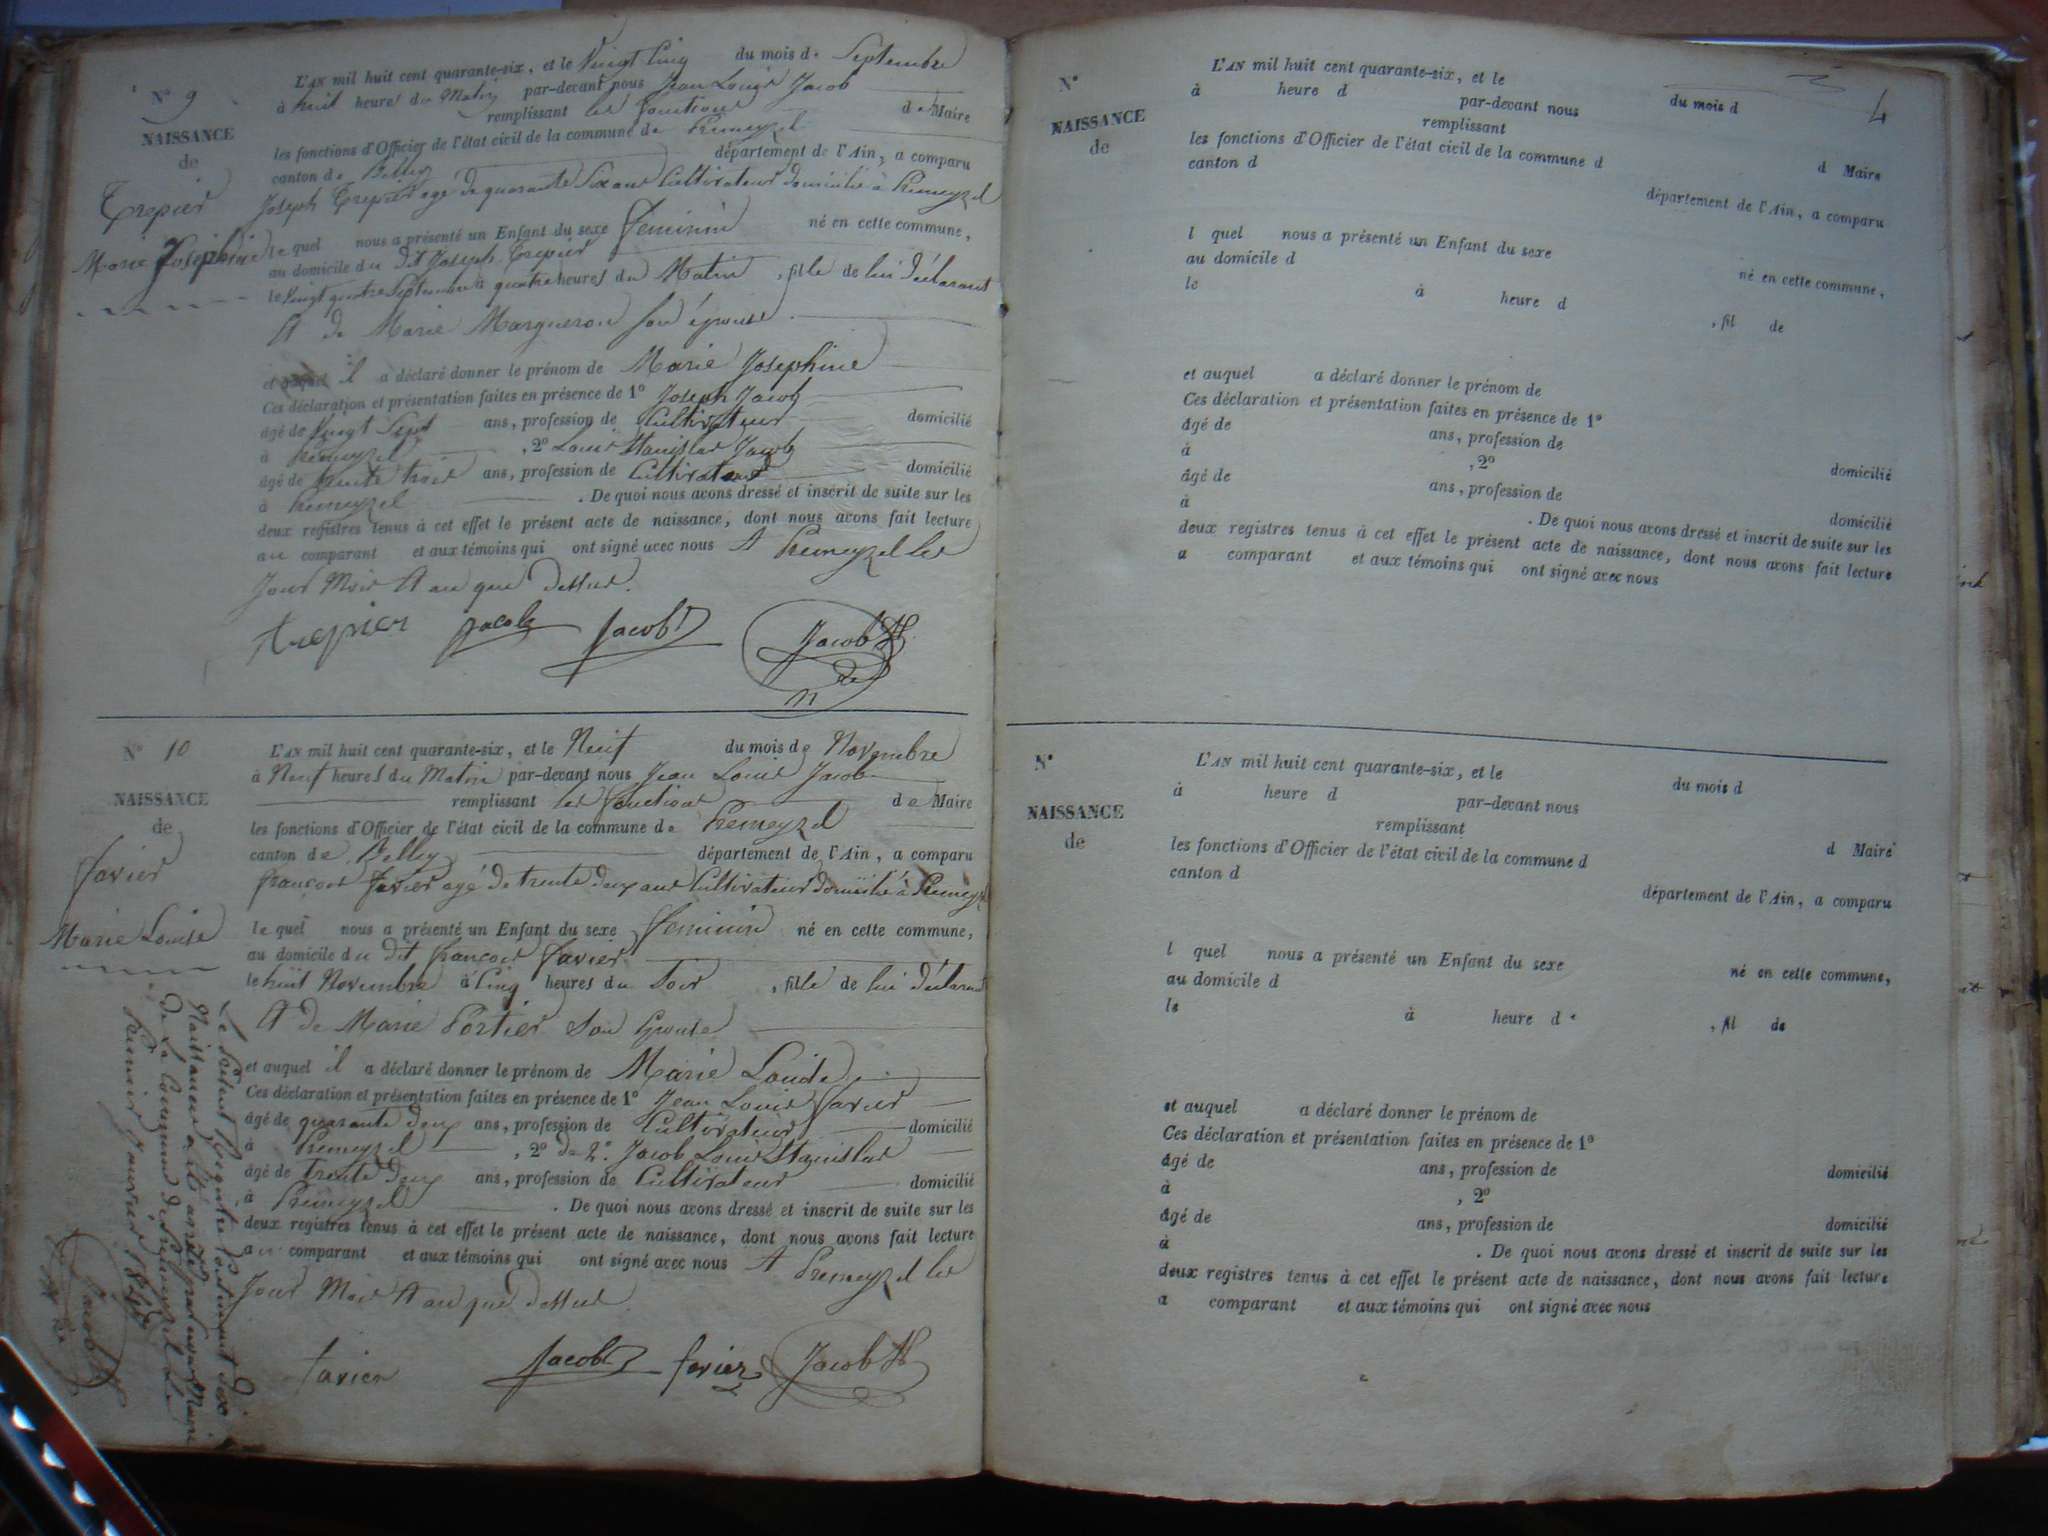 N° 9
NAISSANCE
de
Trepier
Marie Josephine
L'AN mil huit cent quarante-six, et le Vingt Cinq du mois de Septembre
à huit heures du Matin par-devant nous Jean Louis Jacob
remplissant les fonctions de Maire
les fonctions d'Officier de l'état civil de la commune de Premeyzel
canton de Belley département de l'Ain, a comparu
Joseph Trepier agé de quarante Six ans Cultivateur domicilié à Premeyzel
lequel nous a présenté un Enfant du sexe feminin né en cette commune,
au domicile du dit Joseph Trepier
le Vingt quatre Septembre à quatre heures du Matin, fille de lui déclarant
et de Marie Margueron son épouse
et auquel il a déclaré donner le prénom de Marie Josephine
Ces déclaration et présentation faites en présence de 1° Joseph Jacob
âgé de Vingt Sept ans, profession de Cultivateur domicilié
à Premeyzel, 2° Louis Stanislas Jacob
âgé de trente trois ans, profession de Cultivateur domicilié
à Premeyzel. De quoi nous avons dressé et inscrit de suite sur les
deux registres tenus à cet effet le présent acte de naissance, dont nous avons fait lecture
au comparant et aux témoins qui ont signé avec nous A Premeyzel les
Jour Mois et an que dessus.
trepier Jacob Jacob Jacob
N° 10
NAISSANCE
de
favier
Marie Louise
L'AN mil huit cent quarante-six, et le Neuf du mois de Novembre
à Neuf heures du Matin par-devant nous Jean Louis Jacob
remplissant les fonctions de Maire
les fonctions d'Officier de l'état civil de la commune de Premeyzel
canton de Belley département de l'Ain, a comparu
françois favier agé de trente deux ans Cultivateur domicilié à Premeyzel
lequel nous a présenté un Enfant du sexe feminin né en cette commune,
au domicile du dit françois favier
le huit Novembre à Cinq heures du Soir, fille de lui déclarant
et de Marie Portier Son Epouse
et auquel il a déclaré donner le prénom de Marie Louise
Ces déclaration et présentation faites en présence de 1° Jean Louis favier
âgé de quarante deux ans, profession de Cultivateur domicilié
à Premeyzel, 2° de 2° Jacob Louis Stanislas
âgé de trente deux ans, profession de Cultivateur domicilié
à Premeyzel. De quoi nous avons dressé et inscrit de suite sur les
deux registres tenus à cet effet le présent acte de naissance, dont nous avons fait lecture
au comparant et aux témoins qui ont signé avec nous A Premeyzel les
Jour Mois et an que dessus.
favier Jacob favier Jacob
Le présent Registre Contenant dix
Naissances a été arrêté par nous Maire
de la Commune de Premeyzel le
Premier Janvier
Jacob
4
N°
NAISSANCE
de
L'AN mil huit cent quarante-six, et le du mois d
à heure d par-devant nous
remplissant d Maire
les fonctions d'Officier de l'état civil de la commune d
canton d département de l'Ain, a comparu
l quel nous a présenté un Enfant du sexe né en cette commune,
au domicile d
le à heure d , fil de
et auquel a déclaré donner le prénom de
Ces déclaration et présentation faites en présence de 1°
âgé de ans, profession de domicilié
à , 2°
âgé de ans, profession de domicilié
à . De quoi nous avons dressé et inscrit de suite sur les
deux registres tenus à cet effet le présent acte de naissance, dont nous avons fait lecture
a comparant et aux témoins qui ont signé avec nous
N°
NAISSANCE
de
L'AN mil huit cent quarante-six, et le du mois d
à heure d par-devant nous
remplissant d Maire
les fonctions d'Officier de l'état civil de la commune d
canton d département de l'Ain, a comparu
l quel nous a présenté un Enfant du sexe né en cette commune,
au domicile d
le à heure d , fil de
et auquel a déclaré donner le prénom de
Ces déclaration et présentation faites en présence de 1°
âgé de ans, profession de domicilié
à , 2°
âgé de ans, profession de domicilié
à . De quoi nous avons dressé et inscrit de suite sur les
deux registres tenus à cet effet le présent acte de naissance, dont nous avons fait lecture
a comparant et aux témoins qui ont signé avec nous